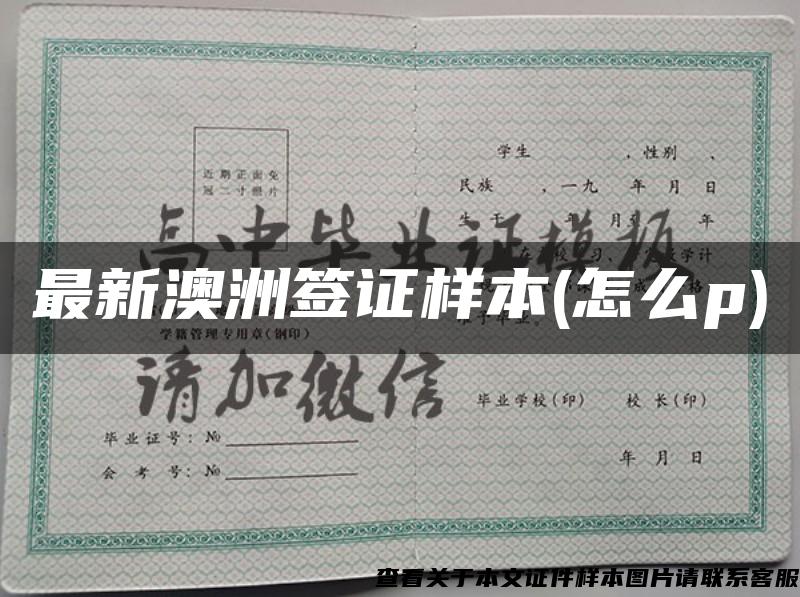 学生 ，性别 、
近期正面免
冠二寸照片
民族 ，一九 年 月 日
高中毕业证模板
最新澳洲签证样本(怎么p)
学籍管理专用章(钢印)
请加微信
毕业学校(印) 校 长(印)
毕业证号：№
会考 号：№
年 月 日
查看关于本文证件样本图片请联系客服